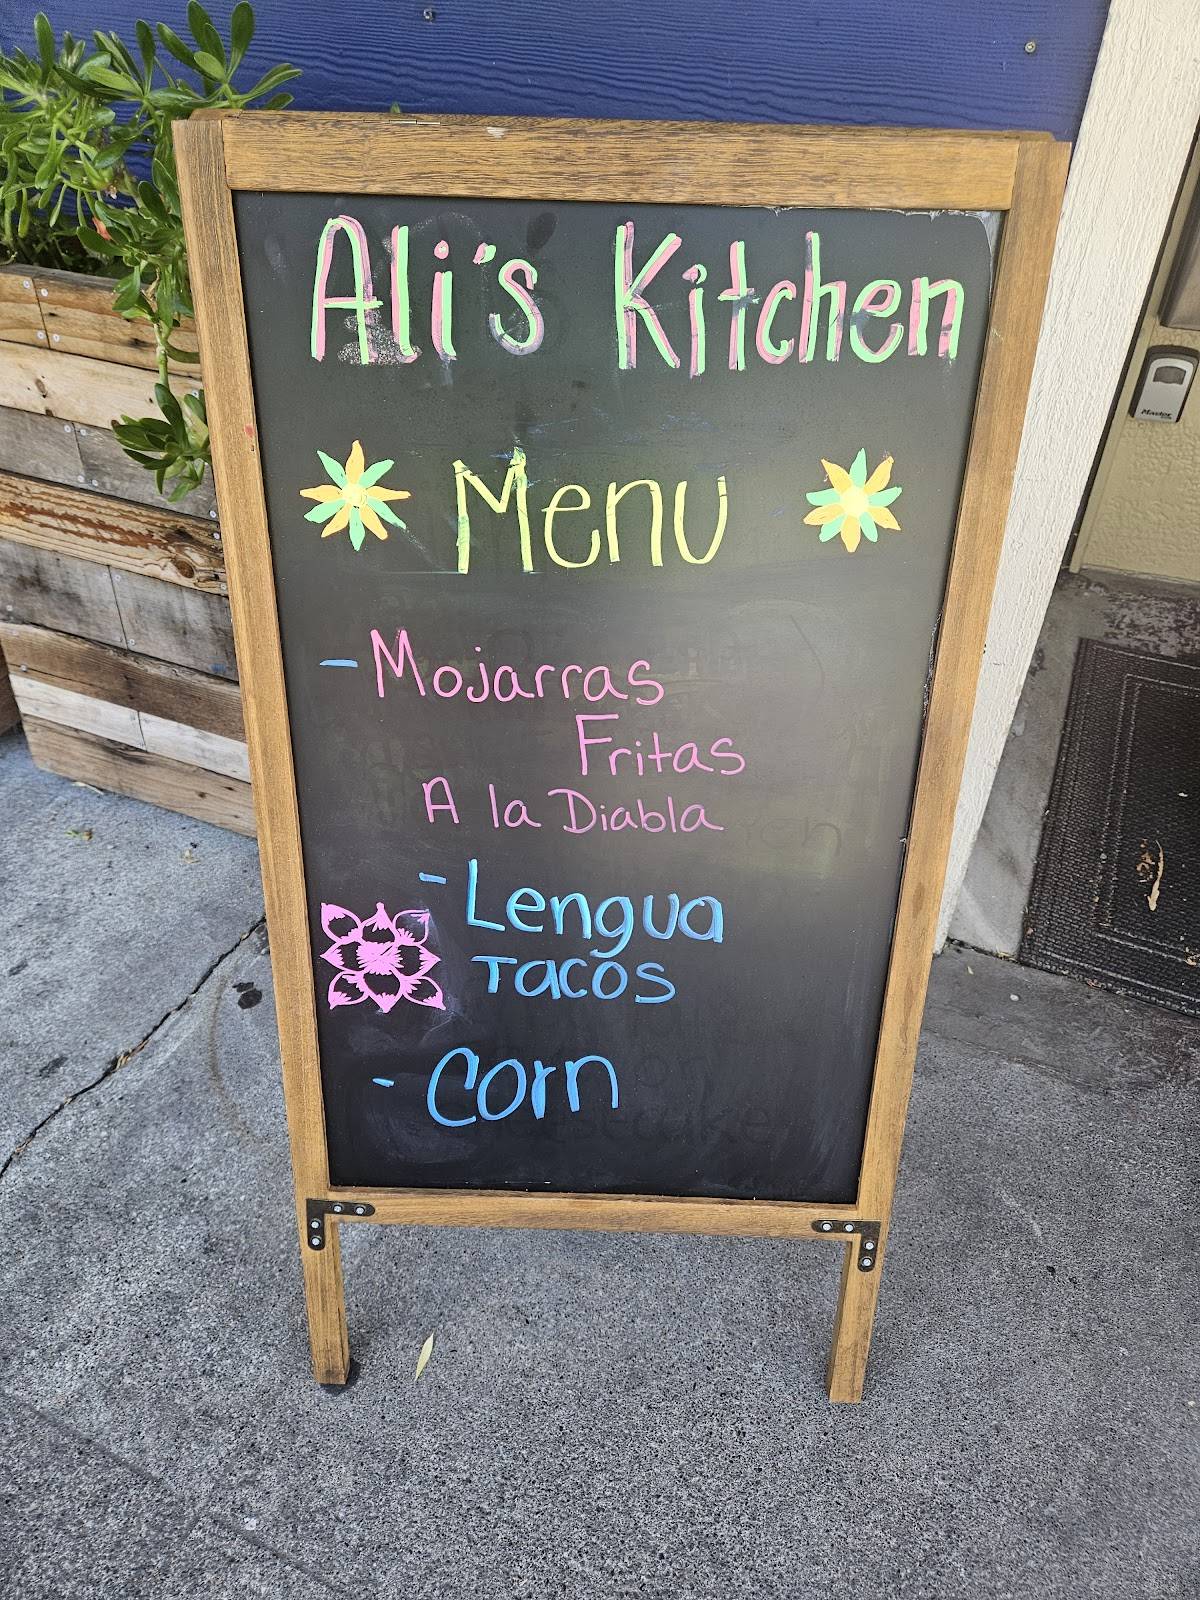 Ali's Kitchen
Menu
- Mojarras
Fritas
A la Diabla
- Lengua
Tacos
- Corn
Master